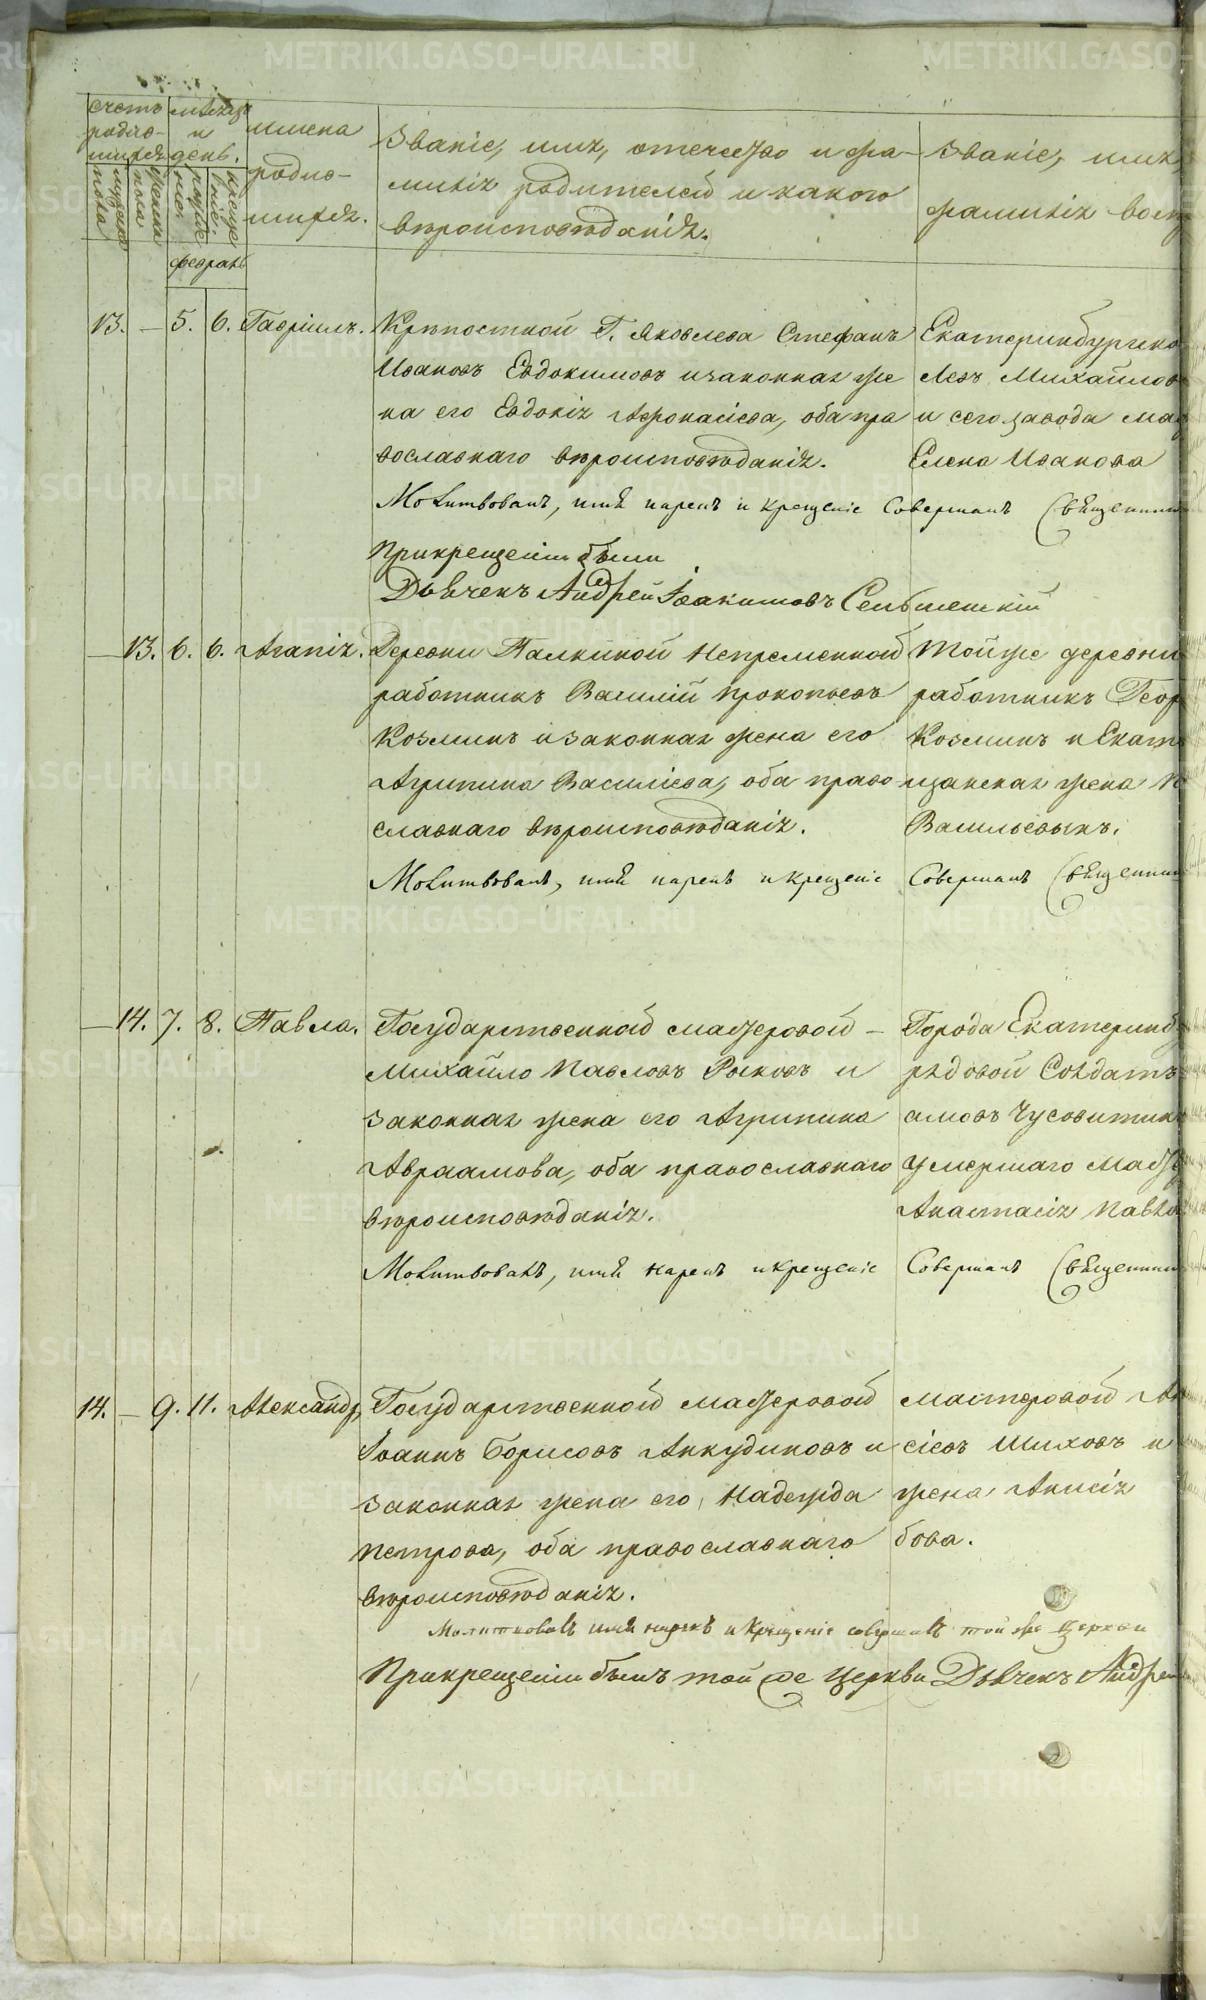 счетъ родив-шихся
мужеска пола
женска пола
мѣсяцъ и день.
рожденія
крещенія
имена родив-шихся.
Званіе, имя, отечество и фа-
милія родителей и какого
вѣроисповѣданія.
Званіе, имя,
фамилія восп
февраль
13. — 5. 6. Гавріилъ.
Крѣпостной Г. Яковлева Стефанъ
Ивановъ Евдокимовъ и законная же
на его Евдокія Афонасіева, оба пра
вославнаго вѣроисповѣданія.
Екатеринбургско
левъ Михайлов
и сего завода мас
Елена Иванова
Молитвовалъ, имя нарекъ и крещеніе Совершалъ Священник
При крещеніи были
Дьячекъ Андрей Іоакимовъ
— 13. 6. 6. Агапія.
Деревни Палкиной Непременной
работникъ Василій Прокопьевъ
Козминъ и законная жена его
Агрипина Василіева, оба право
славнаго вѣроисповѣданія.
Той же деревни
работникъ Геор
Козминъ и Екат
щанская жена
Васильевыхъ.
Молитвовалъ, имя нарекъ и крещеніе Совершалъ Священник
— 14. 7. 8. Павла.
Государственной мастеровой —
Михайло Павловъ Рыковъ и
законная жена его Агрипина
Авраамова, оба православнаго
вѣроисповѣданія.
Города Екатеринб
рядовой Солдатъ
амовъ Чусовитин
умершаго Масте
Анастасія Павло
Молитвовалъ, имя нарекъ и крещеніе Совершалъ Священник
14. — 9. 11. Александръ
Государственной мастеровой
Іоаннъ Борисовъ Анкудиновъ и
законная жена его, Надежда
Петрова, оба православнаго
вѣроисповѣданія.
мастеровой А
сіевъ Шиховъ и
жена Анисія
бова.
Молитвовалъ имя нарекъ и крещеніе совершалъ той же церкви
При крещеніи былъ той же церкви Дьячекъ Андрей
METRIKI.GASO-URAL.RU